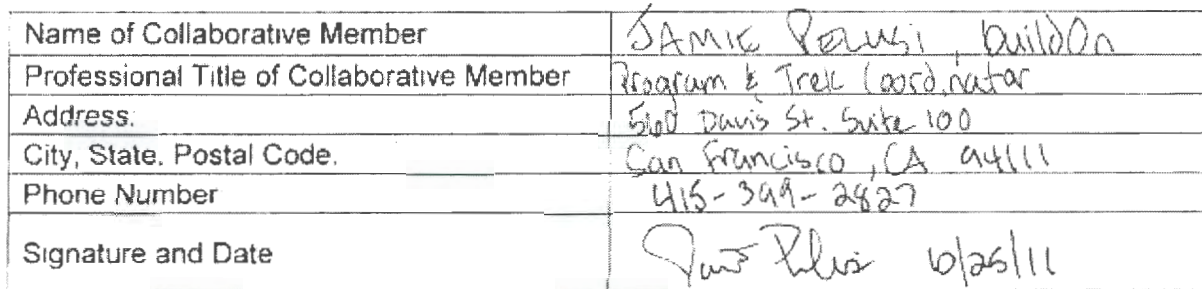 Name of Collaborative Member JAMIE PELUSI, buildOn
Professional Title of Collaborative Member Program & Trek Coordinator
Address: 560 Davis St. Suite 100
City, State. Postal Code. San Francisco, CA 94111
Phone Number 415-399-2827
Signature and Date 6/25/11